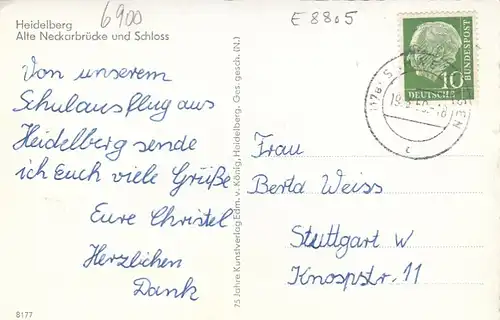 Heidelberg
Alte Neckarbrücke und Schloss
6900
E 8805
Von unserem
Schulausflug aus
Heidelberg sende
ich Euch viele Grüße
Eure Christel
Herzlichen
Dank
8177
75 Jahre Kunstverlag Edm. v. König, Heidelberg. Ges. gesch. (N.)
10
DEUTSCHE
BUNDESPOST
Frau
Berta Weiss
Stuttgart W
Knospstr. 11